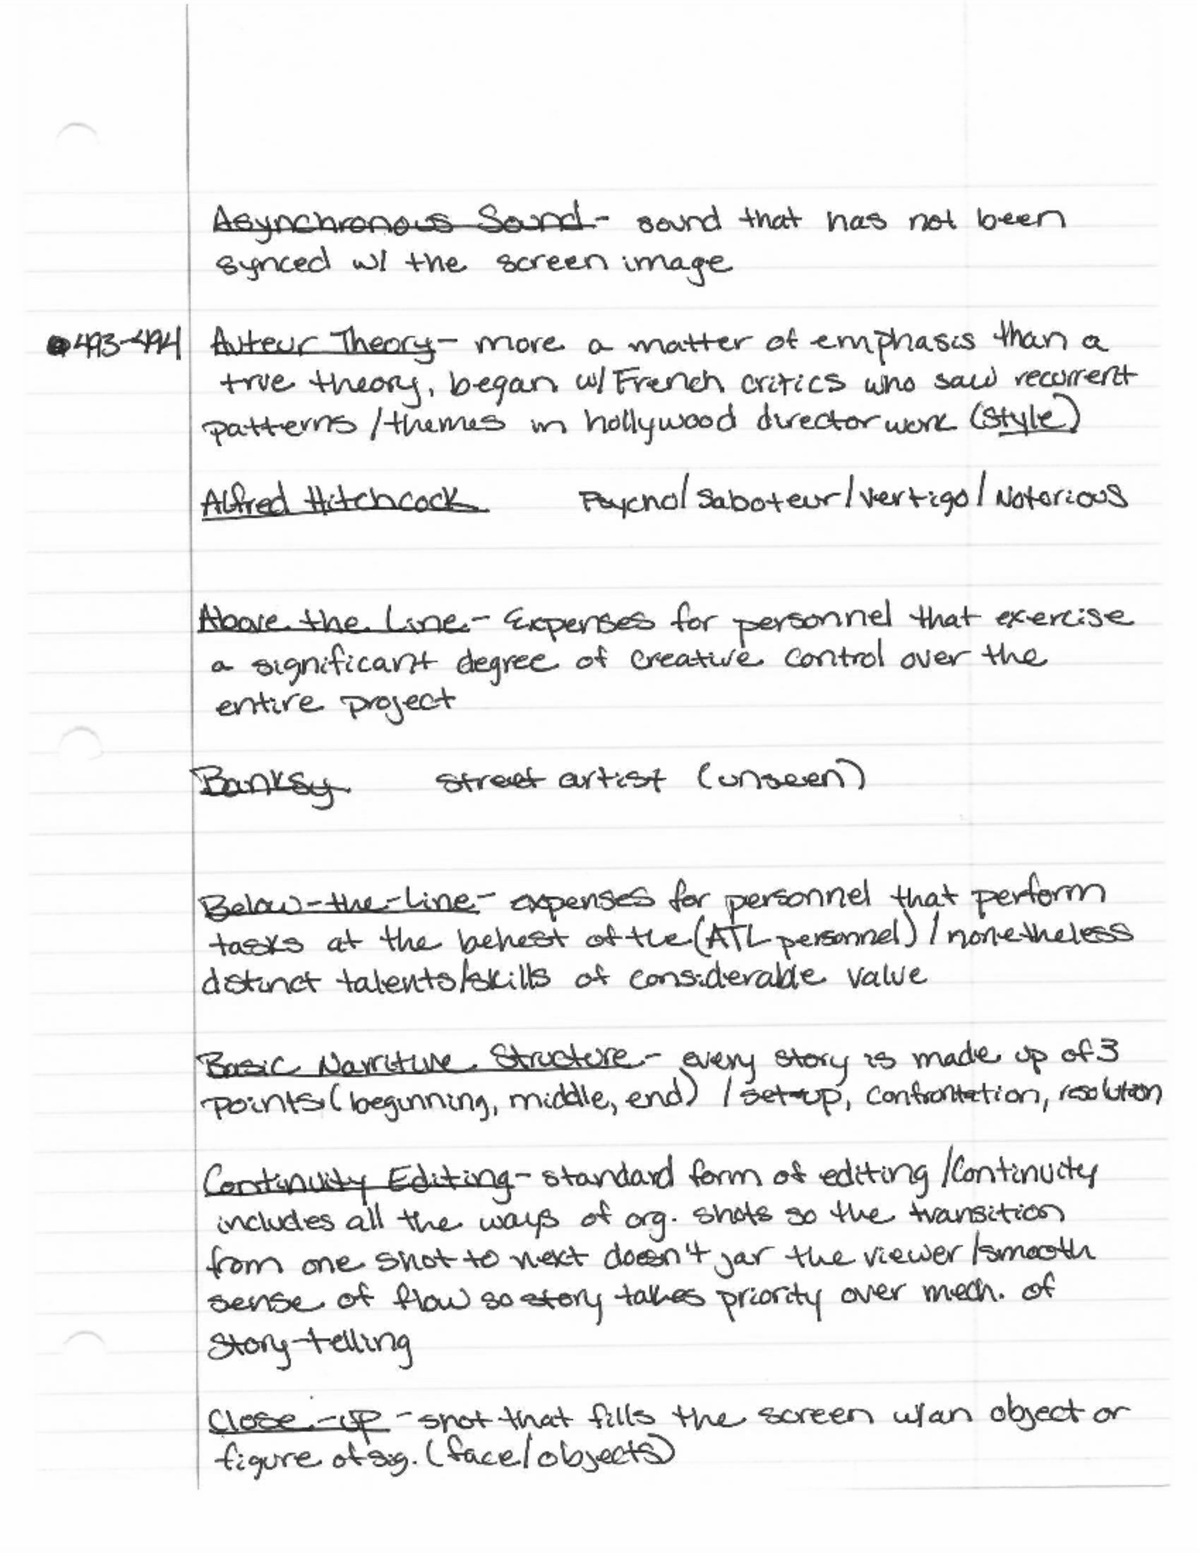 Asynchronous Sound- sound that has not been
synced w/ the screen image
493-494 Auteur Theory- more a matter of emphasis than a
true theory, began w/ French critics who saw recurrent
patterns /themes in hollywood director work (style)
Alfred Hitchcock Psycho/Saboteur/Vertigo/Notorious
Above the Line- Expenses for personnel that exercise
a significant degree of creative control over the
entire project
Banksy street artist (unseen)
Below-the-Line- expenses for personnel that perform
tasks at the behest of the (ATL personnel) / nonetheless
distinct talents/skills of considerable value
Basic Narritive Structure- every story is made up of 3
points (beginning, middle, end) / set-up, confrontation, resolution
Continuity Editing- standard form of editing /Continuity
includes all the ways of org. shots so the transition
from one shot to next doesn't jar the viewer /smooth
sense of flow so story takes priority over mech. of
story-telling
Close-up - shot that fills the screen w/an object or
figure of sig. (face/objects)